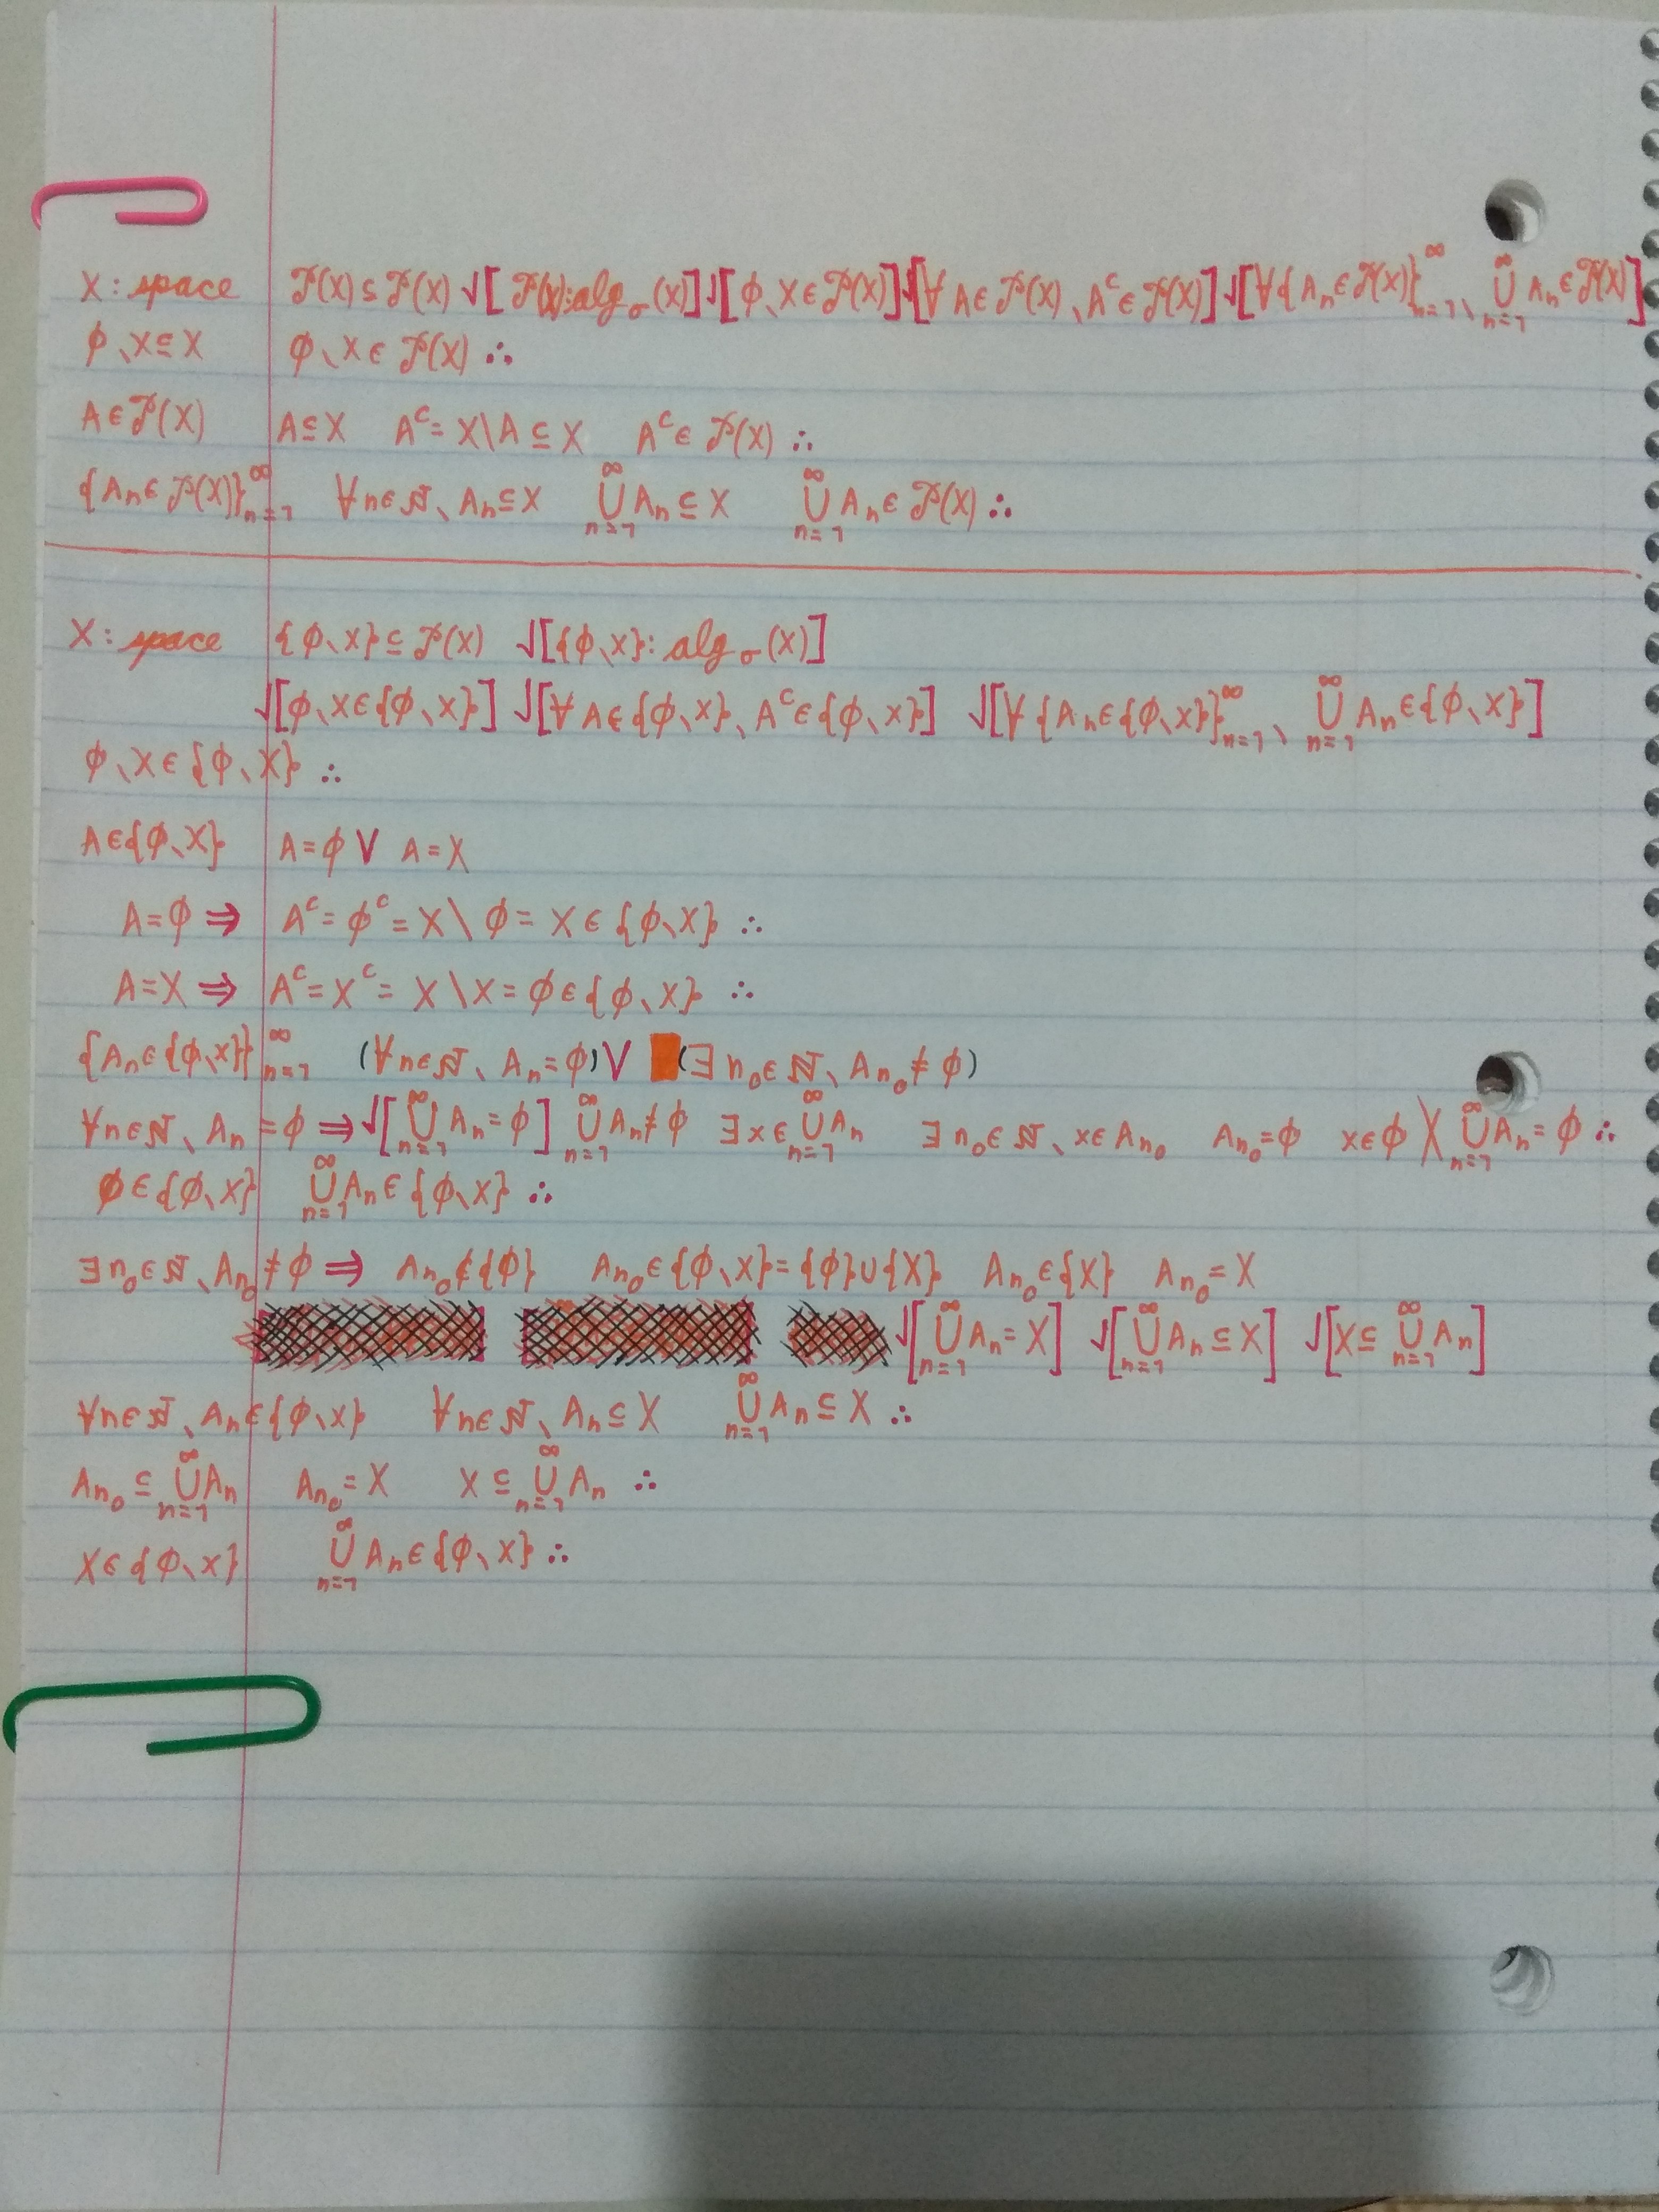 X : space 𝒫(X) ⊆ 𝒫(X) √[ 𝒫(X) : alg_σ(X) ] √[ ϕ、X ∈ 𝒫(X) ] √[ ∀ A ∈ 𝒫(X) 、A^c ∈ 𝒫(X) ] √[ ∀ {A_n ∈ 𝒫(X)}_{n=1}^∞ 、 ⋃_{n=1}^∞ A_n ∈ 𝒫(X) ]
ϕ、X ⊆ X ϕ、X ∈ 𝒫(X) ∴
A ∈ 𝒫(X) A ⊆ X A^c = X \ A ⊆ X A^c ∈ 𝒫(X) ∴
{A_n ∈ 𝒫(X)}_{n=1}^∞ ∀ n ∈ ℕ、A_n ⊆ X ⋃_{n=1}^∞ A_n ⊆ X ⋃_{n=1}^∞ A_n ∈ 𝒫(X) ∴
X : space {ϕ、X} ⊆ 𝒫(X) √[ {ϕ、X} : alg_σ(X) ]
√[ ϕ、X ∈ {ϕ、X} ] √[ ∀ A ∈ {ϕ、X} 、A^c ∈ {ϕ、X} ] √[ ∀ {A_n ∈ {ϕ、X}}_{n=1}^∞ 、 ⋃_{n=1}^∞ A_n ∈ {ϕ、X} ]
ϕ、X ∈ {ϕ、X} ∴
A ∈ {ϕ、X} A = ϕ ∨ A = X
A = ϕ ⇒ A^c = ϕ^c = X \ ϕ = X ∈ {ϕ、X} ∴
A = X ⇒ A^c = X^c = X \ X = ϕ ∈ {ϕ、X} ∴
{A_n ∈ {ϕ、X}}_{n=1}^∞ (∀ n ∈ ℕ、A_n = ϕ) ∨ (∃ n_0 ∈ ℕ、A_{n_0} ≠ ϕ)
∀ n ∈ ℕ、A_n = ϕ ⇒ √[ ⋃_{n=1}^∞ A_n = ϕ ] ⋃_{n=1}^∞ A_n ≠ ϕ ∃ x ∈ ⋃_{n=1}^∞ A_n ∃ n_0 ∈ ℕ、x ∈ A_{n_0} A_{n_0} = ϕ x ∈ ϕ ╳ ⋃_{n=1}^∞ A_n = ϕ ∴
ϕ ∈ {ϕ、X} ⋃_{n=1}^∞ A_n ∈ {ϕ、X} ∴
∃ n_0 ∈ ℕ、A_{n_0} ≠ ϕ ⇒ A_{n_0} ∉ {ϕ} A_{n_0} ∈ {ϕ、X} = {ϕ} ∪ {X} A_{n_0} ∈ {X} A_{n_0} = X
√[ ⋃_{n=1}^∞ A_n = X ] √[ ⋃_{n=1}^∞ A_n ⊆ X ] √[ X ⊆ ⋃_{n=1}^∞ A_n ]
∀ n ∈ ℕ、A_n ∈ {ϕ、X} ∀ n ∈ ℕ、A_n ⊆ X ⋃_{n=1}^∞ A_n ⊆ X ∴
A_{n_0} ⊆ ⋃_{n=1}^∞ A_n A_{n_0} = X X ⊆ ⋃_{n=1}^∞ A_n ∴
X ∈ {ϕ、X} ⋃_{n=1}^∞ A_n ∈ {ϕ、X} ∴